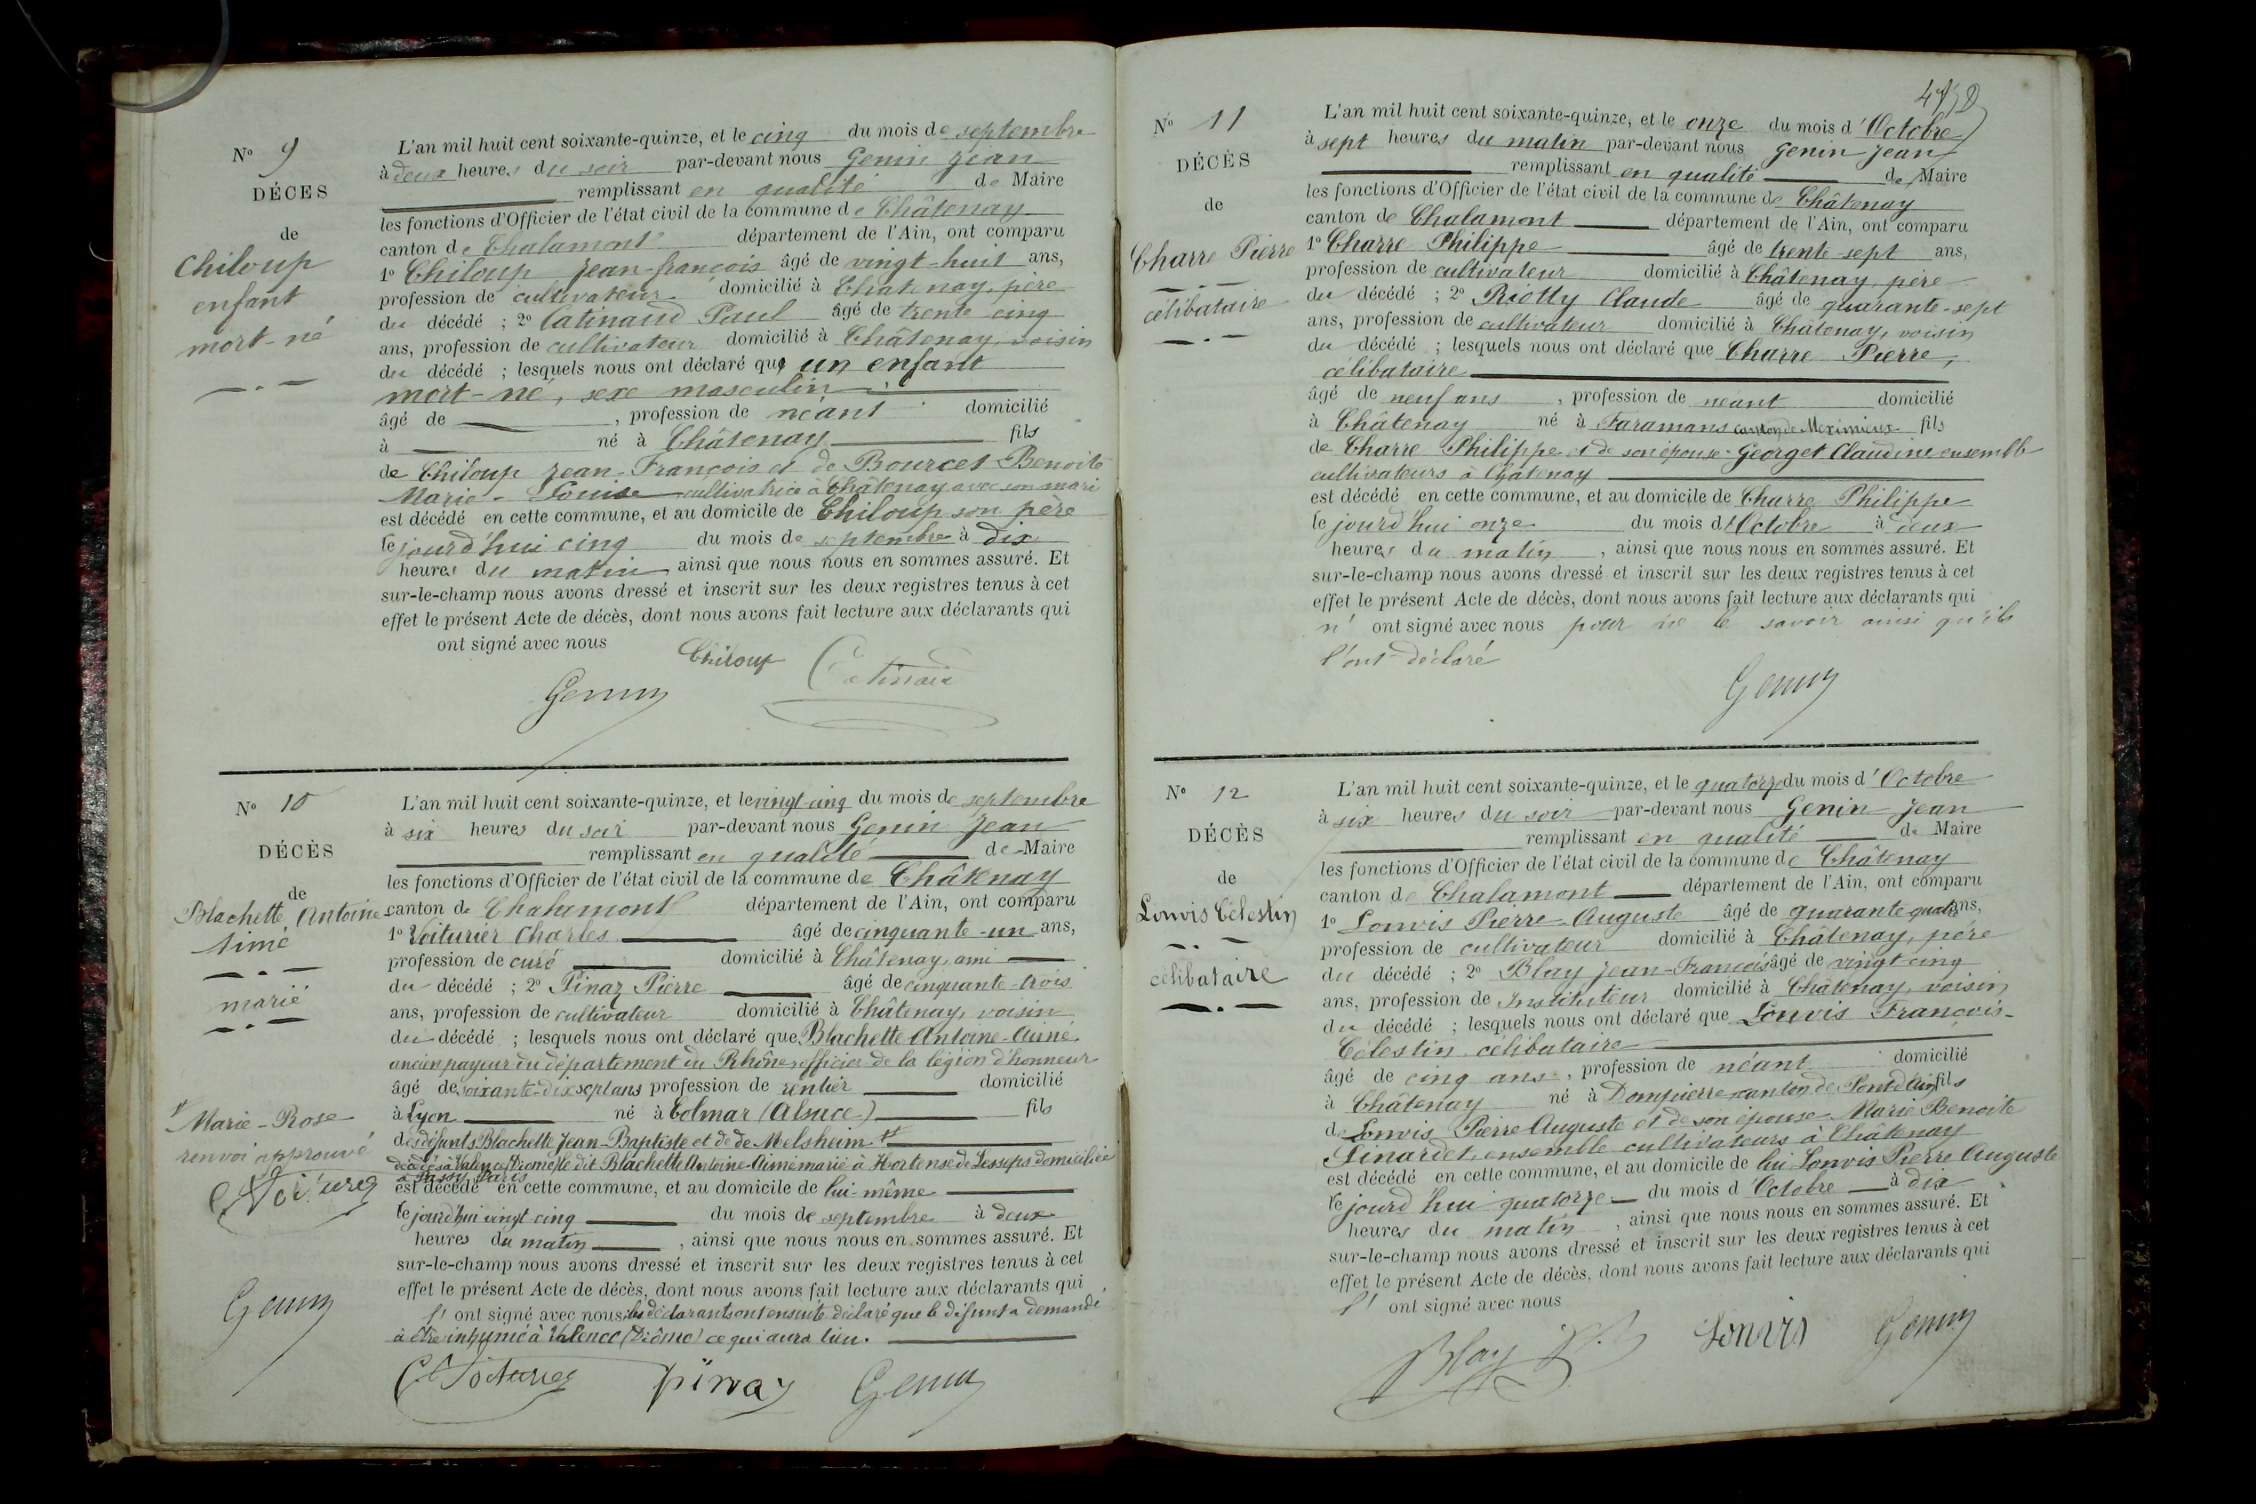 N° 9
DÉCES
de
Chiloup
enfant
mort-né
L'an mil huit cent soixante-quinze, et le cinq du mois de septembre
à deux heures du soir par-devant nous Genin Jean
remplissant en qualité de Maire
les fonctions d'Officier de l'état civil de la commune de Châtenay
canton de Chalamont département de l'Ain, ont comparu
1° Chiloup Jean-françois âgé de vingt-huit ans,
profession de cultivateur domicilié à Chatenay, père
du décédé ; 2° Catinaud Paul âgé de trente cinq
ans, profession de cultivateur domicilié à Châtenay, voisin
du décédé ; lesquels nous ont déclaré que un enfant
mort-né, sexe masculin
âgé de , profession de néant domicilié
à né à Châtenay fils
de Chiloup Jean-François et de Bourcet Benoite
Marie-Louise cultivatrice à Châtenay avec son mari
est décédé en cette commune, et au domicile de Chiloup son père
le jourd'hui cinq du mois de septembre à dix
heures du matin ainsi que nous nous en sommes assuré. Et
sur-le-champ nous avons dressé et inscrit sur les deux registres tenus à cet
effet le présent Acte de décès, dont nous avons fait lecture aux déclarants qui
ont signé avec nous
Chiloup Catinaud
Genin
N° 10
DÉCÈS
de
Blachette Antoine
Aimé
marié
Marie-Rose
renvoi approuvé
C Voiturier
Genin
L'an mil huit cent soixante-quinze, et le vingt-cinq du mois de septembre
à six heures du soir par-devant nous Genin Jean
remplissant en qualité de Maire
les fonctions d'Officier de l'état civil de la commune de Châtenay
canton de Chalamont département de l'Ain, ont comparu
1° Voiturier Charles âgé de cinquante-un ans,
profession de curé domicilié à Châtenay, ami
du décédé ; 2° Pinaz Pierre âgé de cinquante-trois
ans, profession de cultivateur domicilié à Châtenay, voisin
du décédé ; lesquels nous ont déclaré que Blachette Antoine-Aimé
ancien payeur du département du Rhône, officier de la légion d'honneur
âgé de soixante-dix sept ans profession de rentier domicilié
à Lyon né à Colmar (Alsace) fils
des défunts Blachette Jean-Baptiste et de de Melsheim
décédés à Valence (Drôme) le dit Blachette Antoine-Aimé marié à Hortense de Lesseps domiciliée
à Passy Paris
est décédé en cette commune, et au domicile de lui-même
le jourd'hui vingt cinq du mois de septembre à deux
heures du matin , ainsi que nous nous en sommes assuré. Et
sur-le-champ nous avons dressé et inscrit sur les deux registres tenus à cet
effet le présent Acte de décès, dont nous avons fait lecture aux déclarants qui
l' ont signé avec nous les déclarants ont ensuite déclaré que le défunt a demandé
à être inhumé à Valence (Drôme) ce qui aura lieu.
C Voiturier pinaz Genin
N° 11
DÉCÈS
de
Charre Pierre
célibataire
L'an mil huit cent soixante-quinze, et le onze du mois d'Octobre
à sept heures du matin par-devant nous Genin Jean
remplissant en qualité de Maire
les fonctions d'Officier de l'état civil de la commune de Châtenay
canton de Chalamont département de l'Ain, ont comparu
1° Charre Philippe âgé de trente-sept ans,
profession de cultivateur domicilié à Châtenay, père
du décédé ; 2° Riotty Claude âgé de quarante-sept
ans, profession de cultivateur domicilié à Châtenay, voisin
du décédé ; lesquels nous ont déclaré que Charre Pierre,
célibataire
âgé de neuf ans , profession de néant domicilié
à Châtenay né à Faramans canton de Meximieux fils
de Charre Philippe et de son épouse Georget Claudine ensemble
cultivateurs à Châtenay
est décédé en cette commune, et au domicile de Charre Philippe
le jourd'hui onze du mois d'Octobre à deux
heures du matin , ainsi que nous nous en sommes assuré. Et
sur-le-champ nous avons dressé et inscrit sur les deux registres tenus à cet
effet le présent Acte de décès, dont nous avons fait lecture aux déclarants qui
n' ont signé avec nous pour ne le savoir ainsi qu'ils
l'ont déclaré
Genin
N° 12
DÉCÈS
de
Louvis Célestin
célibataire
L'an mil huit cent soixante-quinze, et le quatorze du mois d'Octobre
à six heures du soir par-devant nous Genin Jean
remplissant en qualité de Maire
les fonctions d'Officier de l'état civil de la commune de Châtenay
canton de Chalamont département de l'Ain, ont comparu
1° Louvis Pierre-Auguste âgé de quarante quatre ans,
profession de cultivateur domicilié à Châtenay, père
du décédé ; 2° Blay Jean-François âgé de vingt cinq
ans, profession de Instituteur domicilié à Châtenay, voisin
du décédé ; lesquels nous ont déclaré que Louvis François-
Célestin célibataire
âgé de cinq ans , profession de néant domicilié
à Châtenay né à Dompierre canton de Pont d'Ain fils
de Louvis Pierre Auguste et de son épouse Marie Benoite
Pinardet, ensemble cultivateurs à Châtenay
est décédé en cette commune, et au domicile de lui Louvis Pierre Auguste
le jourd'hui quatorze du mois d'Octobre à dix
heures du matin , ainsi que nous nous en sommes assuré. Et
sur-le-champ nous avons dressé et inscrit sur les deux registres tenus à cet
effet le présent Acte de décès, dont nous avons fait lecture aux déclarants qui
l' ont signé avec nous
Blay Louvis Genin